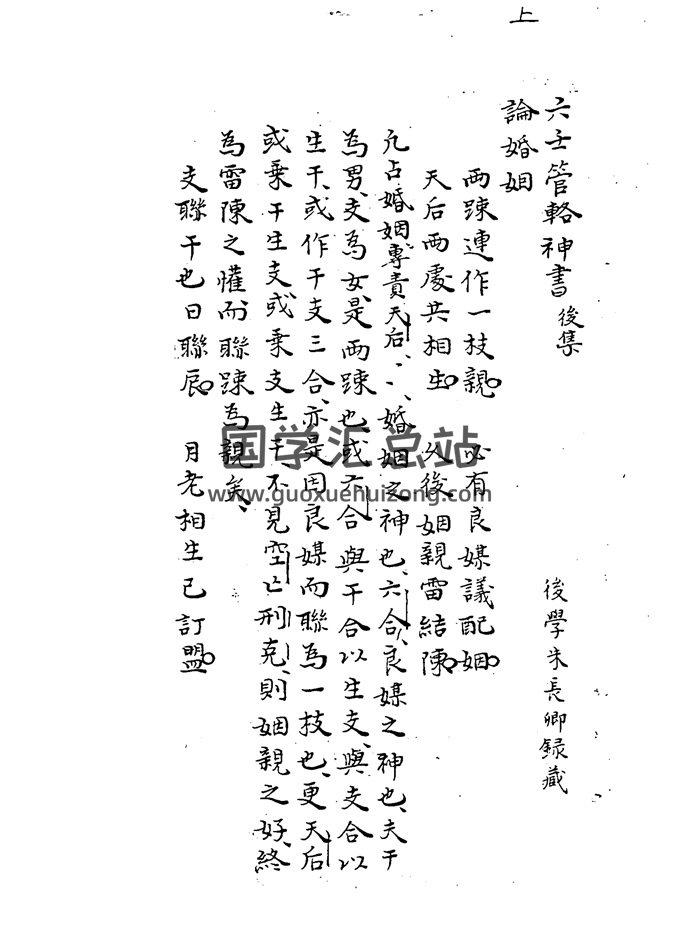 上
六壬管輅神書 後集
後學朱長卿録藏
論婚姻
兩踈連作一枝親 必有良媒議配姻
天后兩處共相生 久後姻親雷結陳
凢占婚姻專責天后、、婚姻之神也、六合、良媒之神也、夫干
為男、支為女、是兩踈也、或六合與干合以生支、與支合以
生干、或作干支三合、亦是因良媒而聯為一技也、更天后
或乗干生支或乗支生干、不見空亡刑克、則姻親之好、終
為雷陳之懽而聯踈為親矣、
支聯干也曰聯辰 月老相生已訂盟
国学汇总站
www.guoxuehuizong.com